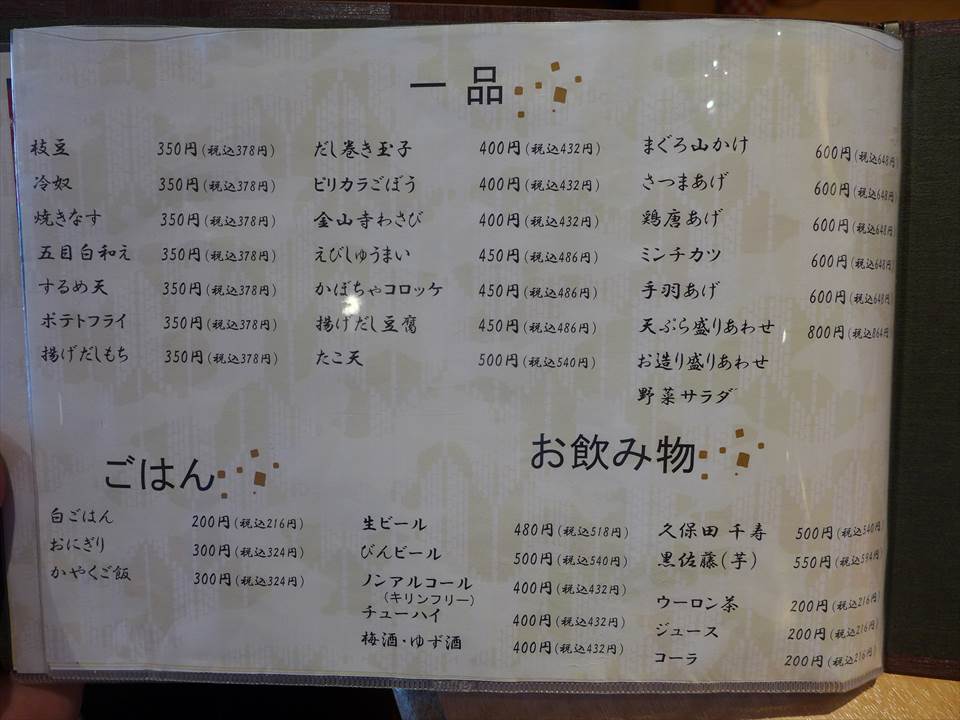 一品
枝豆 350円(税込378円)
冷奴 350円(税込378円)
焼きなす 350円(税込378円)
五目白和え 350円(税込378円)
するめ天 350円(税込378円)
ポテトフライ 350円(税込378円)
揚げだしもち 350円(税込378円)
だし巻き玉子 400円(税込432円)
ピリカラごぼう 400円(税込432円)
金山寺わさび 400円(税込432円)
えびしゅうまい 450円(税込486円)
かぼちゃコロッケ 450円(税込486円)
揚げだし豆腐 450円(税込486円)
たこ天 500円(税込540円)
まぐろ山かけ 600円(税込648円)
さつまあげ 600円(税込648円)
鶏唐あげ 600円(税込648円)
ミンチカツ 600円(税込648円)
手羽あげ 600円(税込648円)
天ぷら盛りあわせ 800円(税込864円)
お造り盛りあわせ
野菜サラダ
ごはん
白ごはん 200円(税込216円)
おにぎり 300円(税込324円)
かやくご飯 300円(税込324円)
お飲み物
生ビール 480円(税込518円)
びんビール 500円(税込540円)
ノンアルコール 400円(税込432円)
(キリンフリー)
チューハイ 400円(税込432円)
梅酒・ゆず酒 400円(税込432円)
久保田 千寿 500円(税込540円)
黒佐藤(芋) 550円(税込594円)
ウーロン茶 200円(税込216円)
ジュース 200円(税込216円)
コーラ 200円(税込216円)